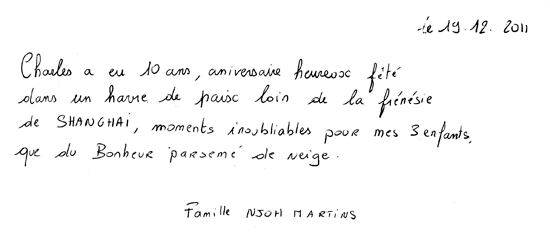 le 19.12.2011
Charles a eu 10 ans, aniversaire heureux fêté
dans un havre de paix loin de la frénésie
de SHANGHAI, moments inoubliables pour mes 3 enfants,
que du Bonheur parsemé de neige.
Famille NJOH MARTINS